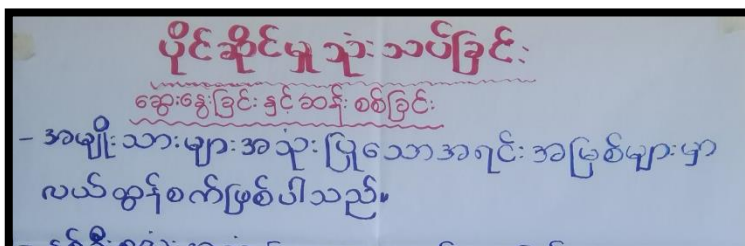 ပိုင်ဆိုင်မှု သုံးသပ်ခြင်း
ဆွေးနွေးခြင်း နှင့် ဆန်းစစ်ခြင်း
- အမျိုးသားများအသုံးပြုသောအရင်းအမြစ်များမှာ
လယ်ထွန်စက်ဖြစ်ပါသည်။